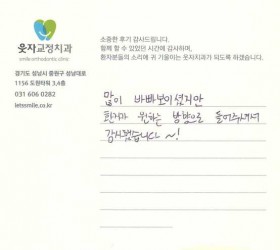 웃자교정치과
smile orthodontic clinic
경기도 성남시 중원구 성남대로
1156 도원타워 3,4층
031 606 0282
letssmile.co.kr
소중한 후기 감사드립니다.
함께 할 수 있었던 시간에 감사하며,
환자분들의 소리에 귀 기울이는 웃자치과가 되도록 하겠습니다.
많이 바빠보이셨지만
환자가 원하는 방향으로 들어주셔서
감사했습니다~!